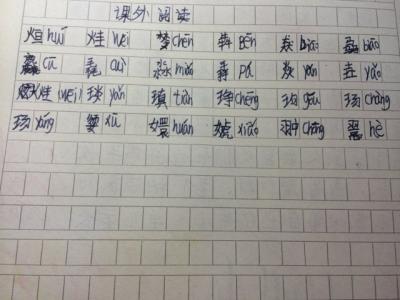 课外阅读
烜huī 烓wei 棽chēn 犇Bēn 猋biāo 骉biāo
麤cū 毳cuì 淼miǎo 掱pá 焱yàn 垚yáo
烓(wēi) 琰yǎn 瑱tiàn 琤chēng 玽gǒu 玚chàng
玚yáng 嬃xū 嬛huán 婋xiāo 翀chōng 翯hè